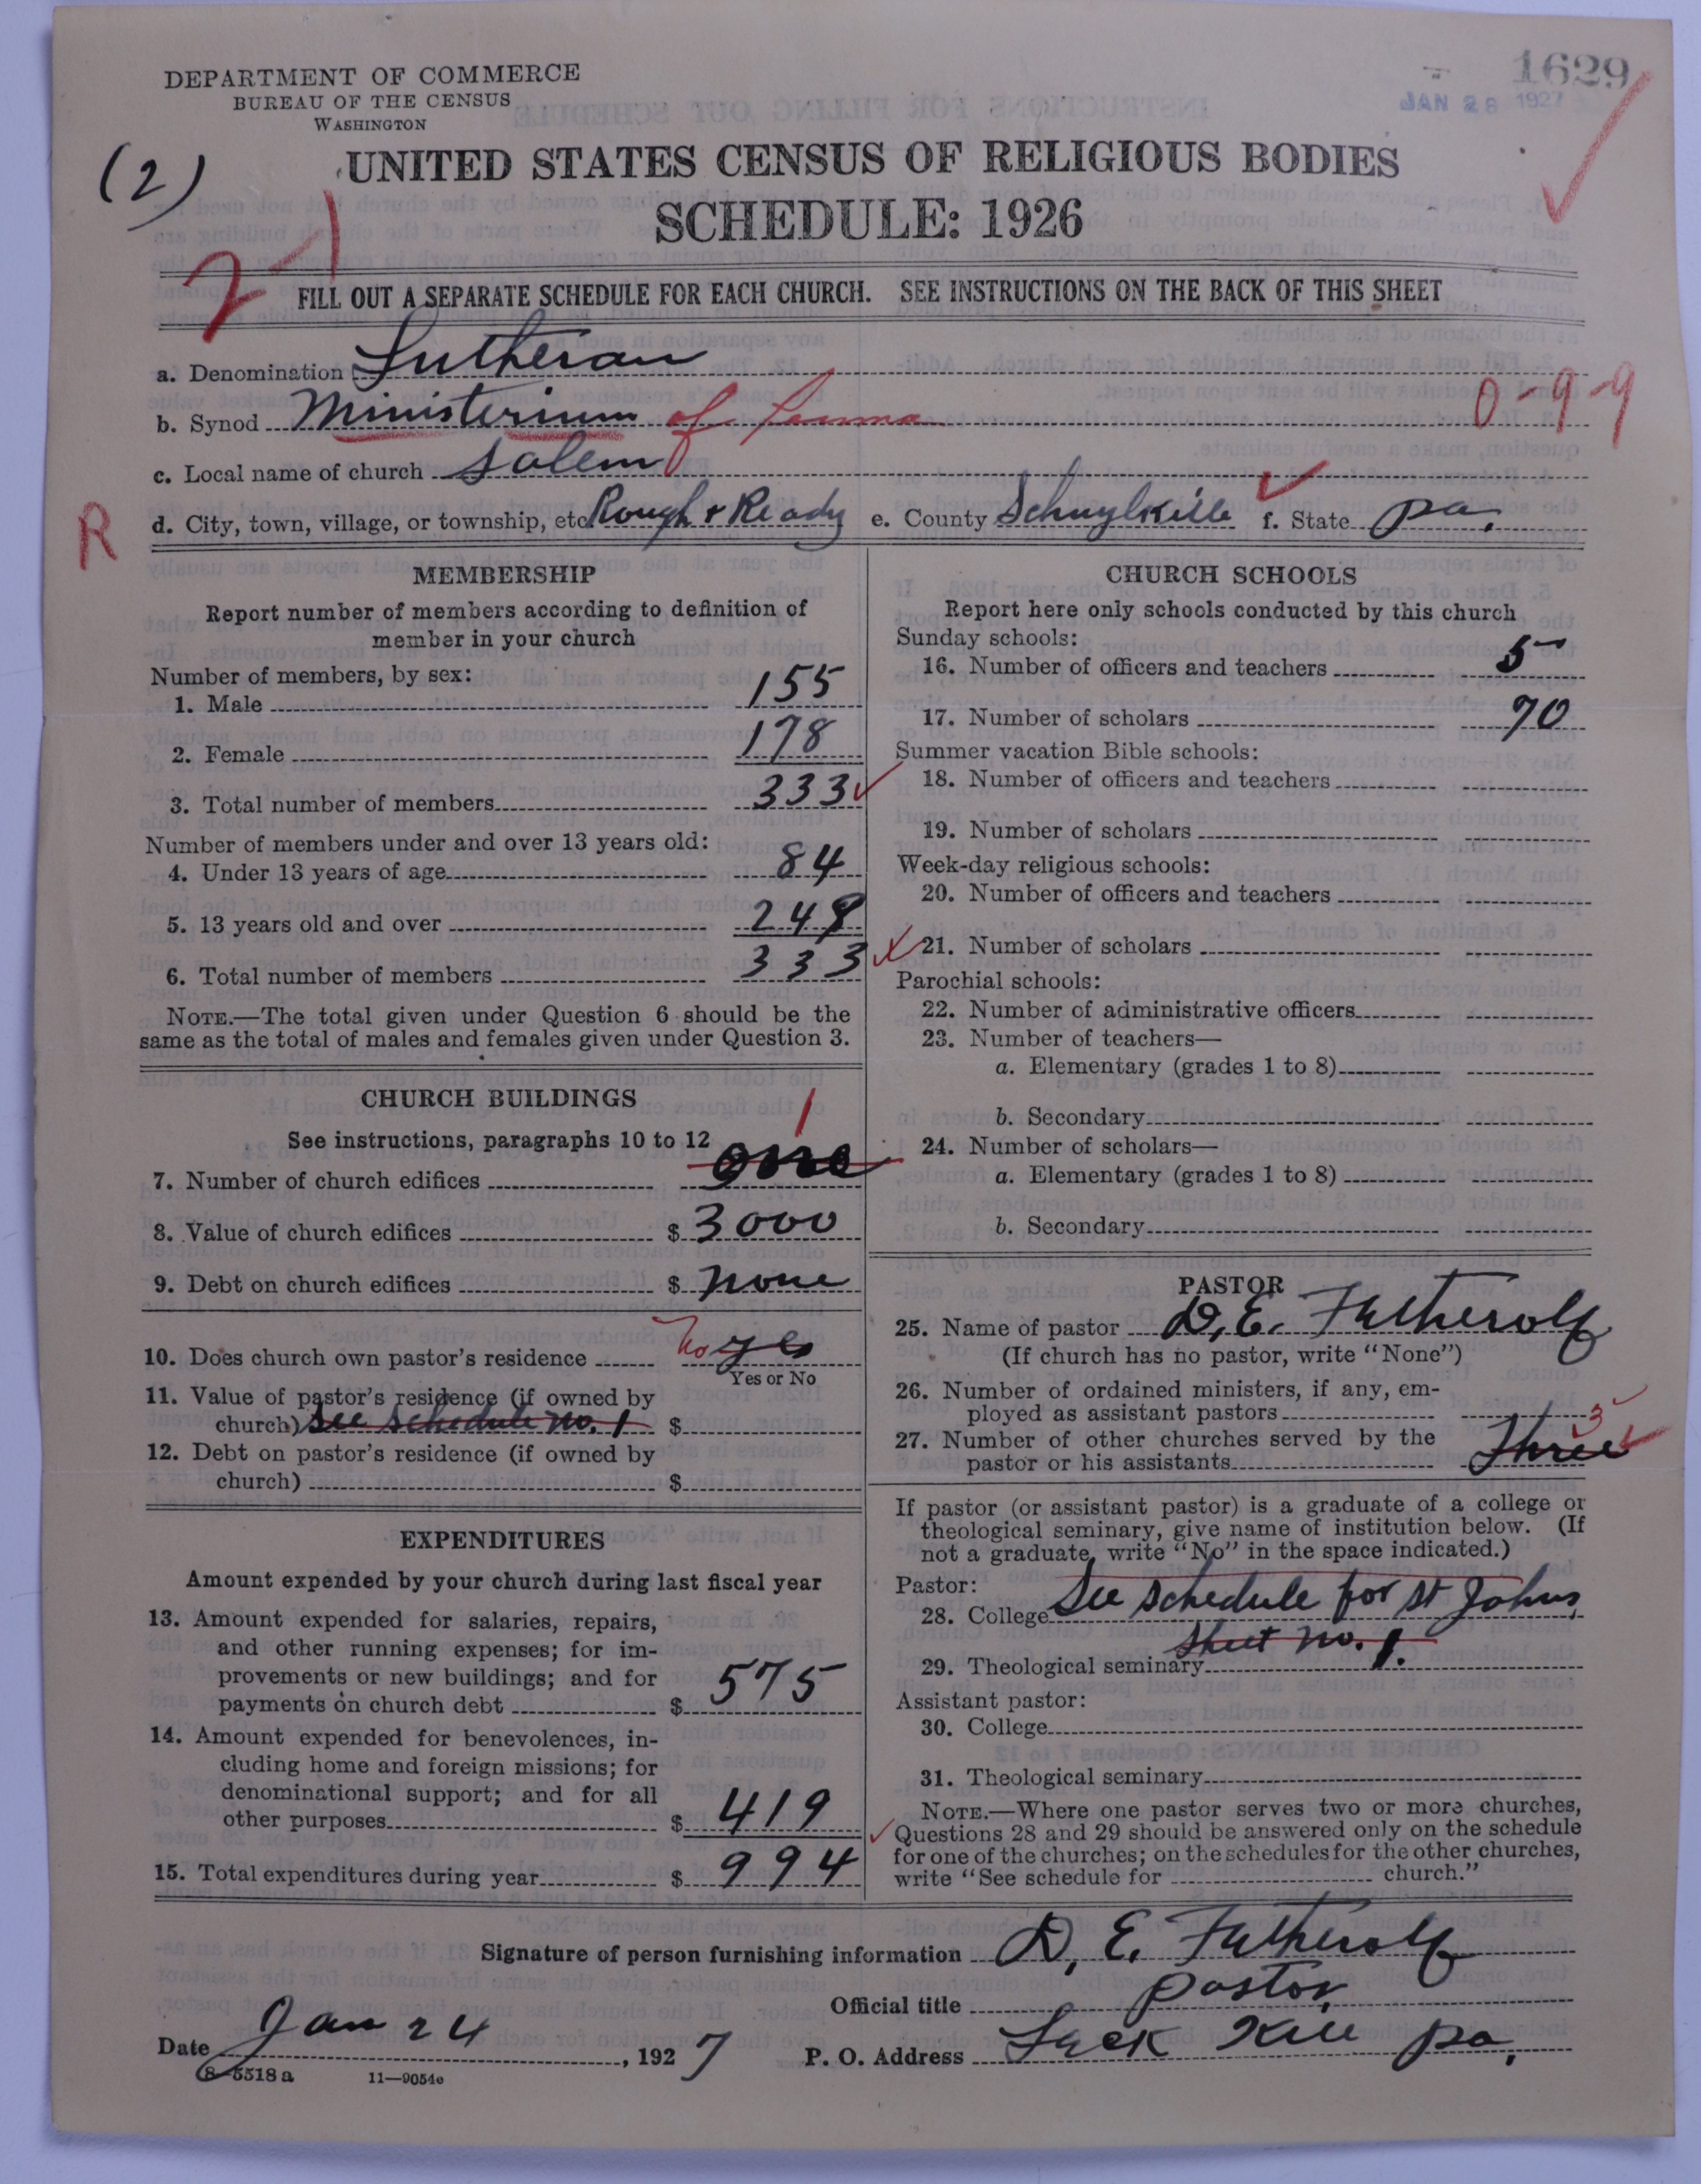 1629
JAN 28 1927
DEPARTMENT OF COMMERCE
BUREAU OF THE CENSUS
WASHINGTON
(2)
UNITED STATES CENSUS OF RELIGIOUS BODIES
SCHEDULE: 1926
2-1
FILL OUT A SEPARATE SCHEDULE FOR EACH CHURCH. SEE INSTRUCTIONS ON THE BACK OF THIS SHEET
a. Denomination Lutheran
b. Synod Ministerium of Penna
0-9-9
c. Local name of church Salem
R
d. City, town, village, or township, etc Rough & Ready e. County Schuylkill f. State Pa.
MEMBERSHIP
Report number of members according to definition of
member in your church
Number of members, by sex:
1. Male 155
2. Female 178
3. Total number of members 333
Number of members under and over 13 years old:
4. Under 13 years of age 84
5. 13 years old and over 249
6. Total number of members 333
NOTE.—The total given under Question 6 should be the
same as the total of males and females given under Question 3.
CHURCH BUILDINGS
See instructions, paragraphs 10 to 12
7. Number of church edifices one 1
8. Value of church edifices $ 3000
9. Debt on church edifices $ none
10. Does church own pastor's residence No yes
Yes or No
11. Value of pastor's residence (if owned by
church) See schedule no. 1 $
12. Debt on pastor's residence (if owned by
church) $
EXPENDITURES
Amount expended by your church during last fiscal year
13. Amount expended for salaries, repairs,
and other running expenses; for im-
provements or new buildings; and for
payments on church debt $ 575
14. Amount expended for benevolences, in-
cluding home and foreign missions; for
denominational support; and for all
other purposes $ 419
15. Total expenditures during year $ 994
CHURCH SCHOOLS
Report here only schools conducted by this church
Sunday schools:
16. Number of officers and teachers 5
17. Number of scholars 70
Summer vacation Bible schools:
18. Number of officers and teachers
19. Number of scholars
Week-day religious schools:
20. Number of officers and teachers
21. Number of scholars
Parochial schools:
22. Number of administrative officers
23. Number of teachers—
a. Elementary (grades 1 to 8)
b. Secondary
24. Number of scholars—
a. Elementary (grades 1 to 8)
b. Secondary
PASTOR
25. Name of pastor D. E. Fetherolf
(If church has no pastor, write "None")
26. Number of ordained ministers, if any, em-
ployed as assistant pastors
27. Number of other churches served by the
pastor or his assistants Three 3
If pastor (or assistant pastor) is a graduate of a college or
theological seminary, give name of institution below. (If
not a graduate, write "No" in the space indicated.)
Pastor:
28. College See schedule for St Johns
sheet no. 1.
29. Theological seminary
Assistant pastor:
30. College
31. Theological seminary
NOTE.—Where one pastor serves two or more churches,
Questions 28 and 29 should be answered only on the schedule
for one of the churches; on the schedules for the other churches,
write "See schedule for church."
Signature of person furnishing information D. E. Fetherolf
Official title Pastor
Date Jan 24, 1927 P. O. Address Pa.
8-5518a 11—9054e